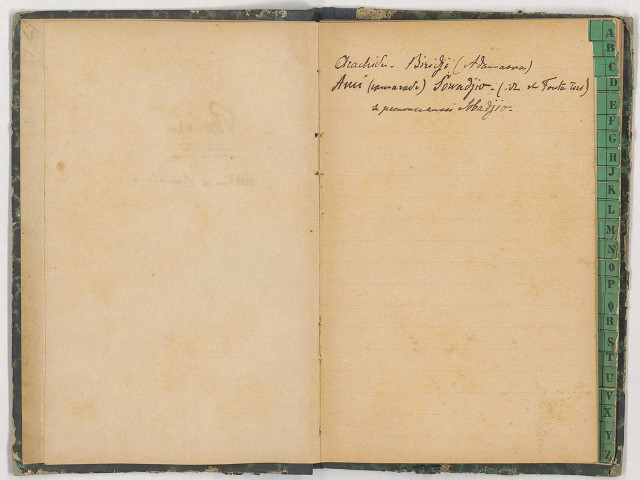 Arachide. Biridji (Adamaoua)
Ami (camarade) Sowadjio - (id. et Fouta
se prononce aussi Abadjio -
A
B
C
D
E
F
G
H
J
K
L
M
N
O
P
Q
R
S
T
U
V
X
Y
Z